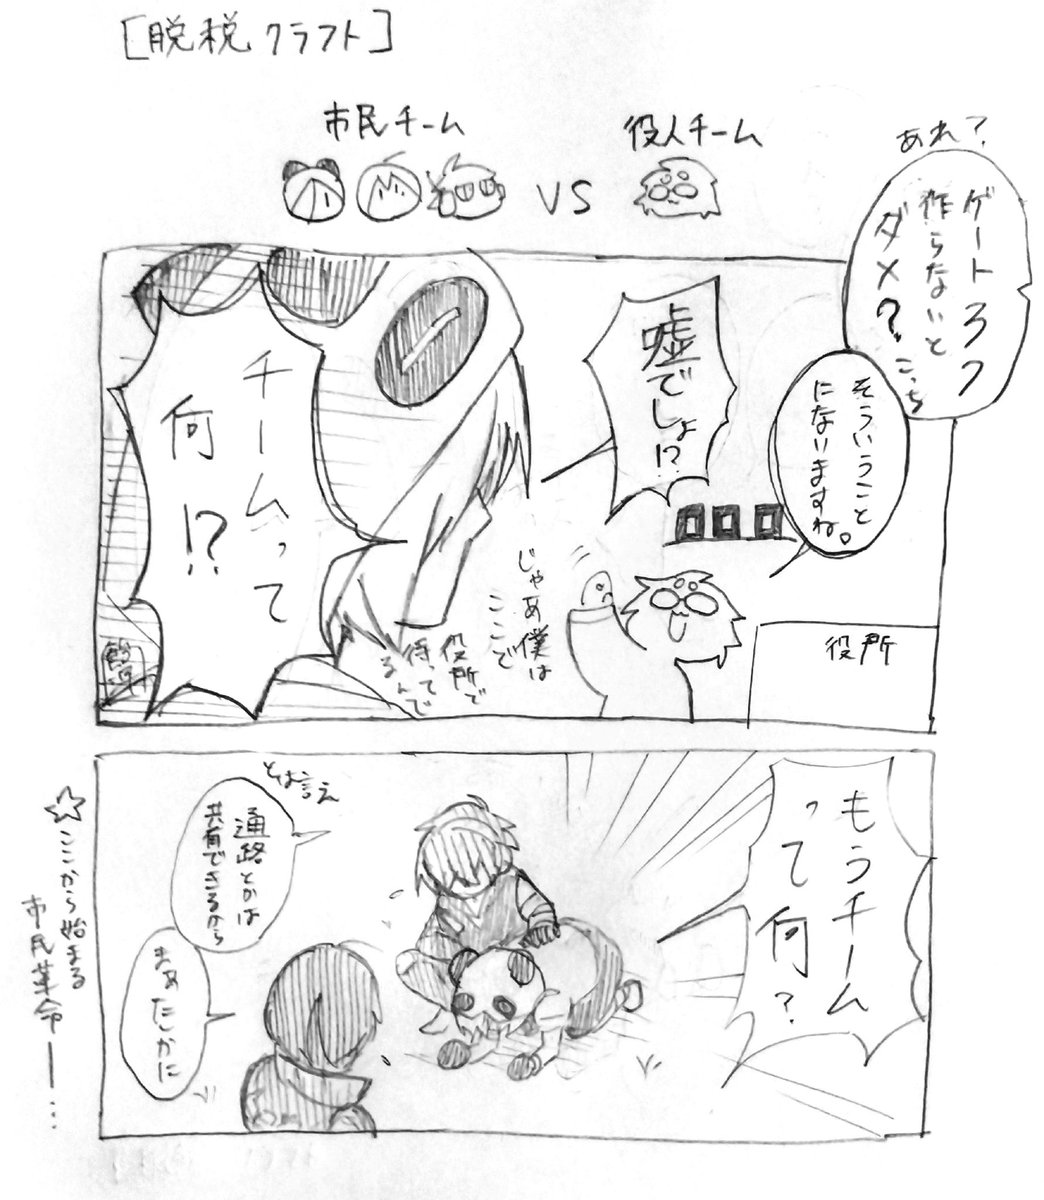 [脱税クラフト]
市民チーム
VS
役人チーム
あれ?
ゲート3つ
作らないと
ダメ?
こっち
そういうこと
になりますね。
嘘でしょ!?
チームって
何!?
じゃあ僕は
ここで
役所で
待って
るんで
役所
もうチーム
って何?
とは言え
通路とかは
共有できるから
まぁたしかに
☆ここから始まる
市民革命――…